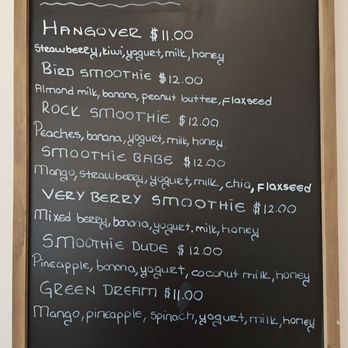 HANGOVER $11.00
Strawberry, kiwi, yogurt, milk, honey
BIRD SMOOTHIE $12.00
Almond milk, banana, peanut butter, flaxseed
ROCK SMOOTHIE $12.00
Peaches, banana, yogurt, milk, honey
SMOOTHIE BABE $12.00
Mango, strawberry, yogurt, milk, chia, flaxseed
VERY BERRY SMOOTHIE $12.00
Mixed berry, banana, yogurt, milk, honey
SMOOTHIE DUDE $12.00
Pineapple, banana, yogurt, coconut milk, honey
GREEN DREAM $11.00
Mango, pineapple, spinach, yogurt, milk, honey